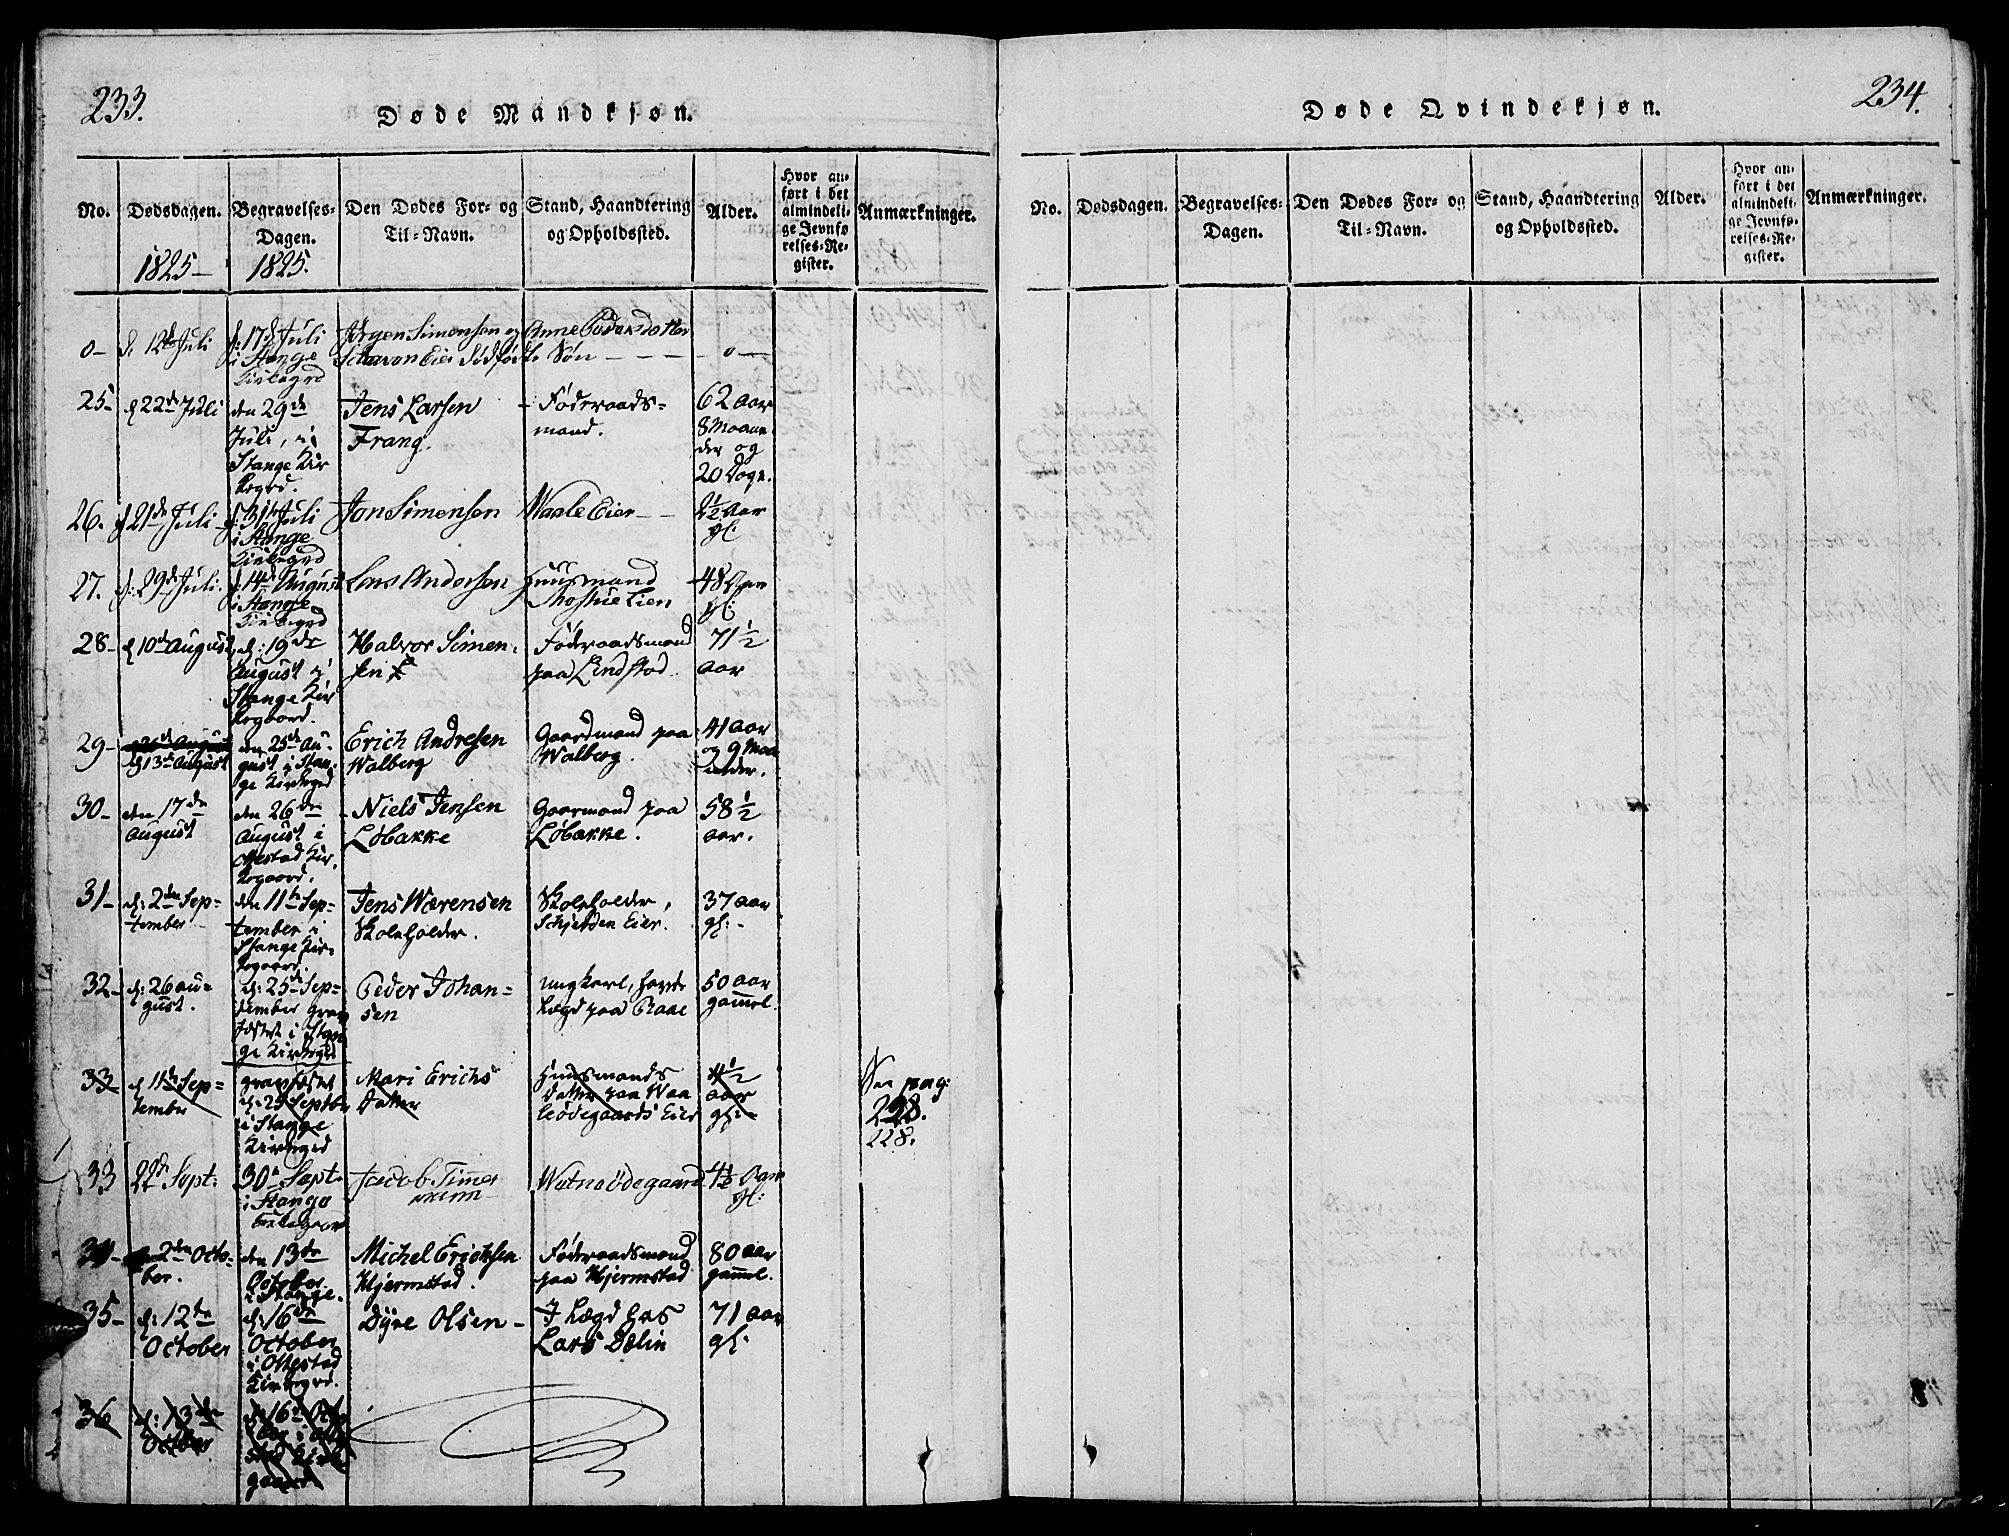 233.
Døde Mandkjøn.
No.
Dødsdagen.
1825-
Begravelses-
Dagen.
1825.
Den Dødes For- og
Til-Navn.
Stand, Haandtering
og Opholdssted.
Alder.
Hvor an-
ført i det
almindeli-
ge Jevnfø
relses-Re-
gister.
Anmærkninger.
0-
d. 12te Juli
d: 17d Juli
i Stange
Kirkegrd
Jørgen Simensen og Anne Pedersdatter
Eier dødfødte Søn - - -
- 0 -
25-
d 22de Juli
den 29de
Juli, i
Stange Kir
kegrd.
Jens Larsen
Frang.
- Føderaads-
mand.
62 aar
8 Maane
der og
20 Dage.
26.
d 21de Juli
d: 31te Juli
i Stange
Kirkegrd
Jon Simensen
Waale Eier -
2½ Aar
gl:
27.
d: 29de Juli.
d: 14de August
i Stange
Kirkegrd
Lars Andersen
Huusmand
Eier
48 Aar
gl:
28-
d 10de August
d: 19de
August i
Stange Kir
kegaard.
Halvor Simen-
sen
Føderaadsmand
paa Lindstad.
71½
aar
29-
d 13de August
den 25de Au-
gust i Stan-
ge Kirkegrd
Erich Andresen
Walberg
Gaardmand paa
Walberg.
41 aar
og 9 Maa
neder.
30-
den 17de
August
den 26de
August i
Ottestad Kir-
kegaard.
Niels Jensen
Løbakke
Gaarmand paa
Løbakke.
58½
aar.
31-
d: 2den Sep-
tember
den 11te Sep-
tember i
Stange Kir-
kegaard.
Jens Wærensen
Skoleholder.
Skoleholder,
Schjerden Eier.
37 aar
gl: -
32-
d: 26 au-
gust.
d: 25de Sep-
tember grav
fæstet i Stan
ge Kirkegrd
Peder Johan-
sen
ungkarl, havde
Lægd paa Raae
50 aar
gammel.
33
d 11te Sep-
tember
gravfæstet
d: 25 Septbr
i Stange
Kirkegrd
Mari Erichs
datter
Huusmands
datter paa Waa
leødegaards Eier
4½
aar
gl: -
See pag:
228.
228.
33
22de Sept:
30te Sept.
i Stange
Kirkegaard
Jacob Timmer
mann
Watneødegaard
4½ Aar
gl:
34-
2den Octo-
ber.
den 13de
October
i Stange.
Michel Erichsen
Hjermstad.
Føderaadsmand
paa Hjermstad
80 aar
gammel.
35-
d: 12te
October
d: 16de
October
i Ottestad
Kirkegrd.
Dyre Olsen -
I Lægd hos
Lars Dælin
71 aar
gl:
36
d: 13de
October
d: 16de Octo
ber i Otte
stad Kirke
gaard
234.
Døde Qvindekjøn.
No.
Dødsdagen.
Begravelses-
Dagen.
Den Dødes For- og
Til-Navn.
Stand, Haandtering
og Opholdssted.
Alder.
Hvor an-
ført i det
almindeli-
ge Jevnfø-
relses-Re-
gister.
Anmærkninger.